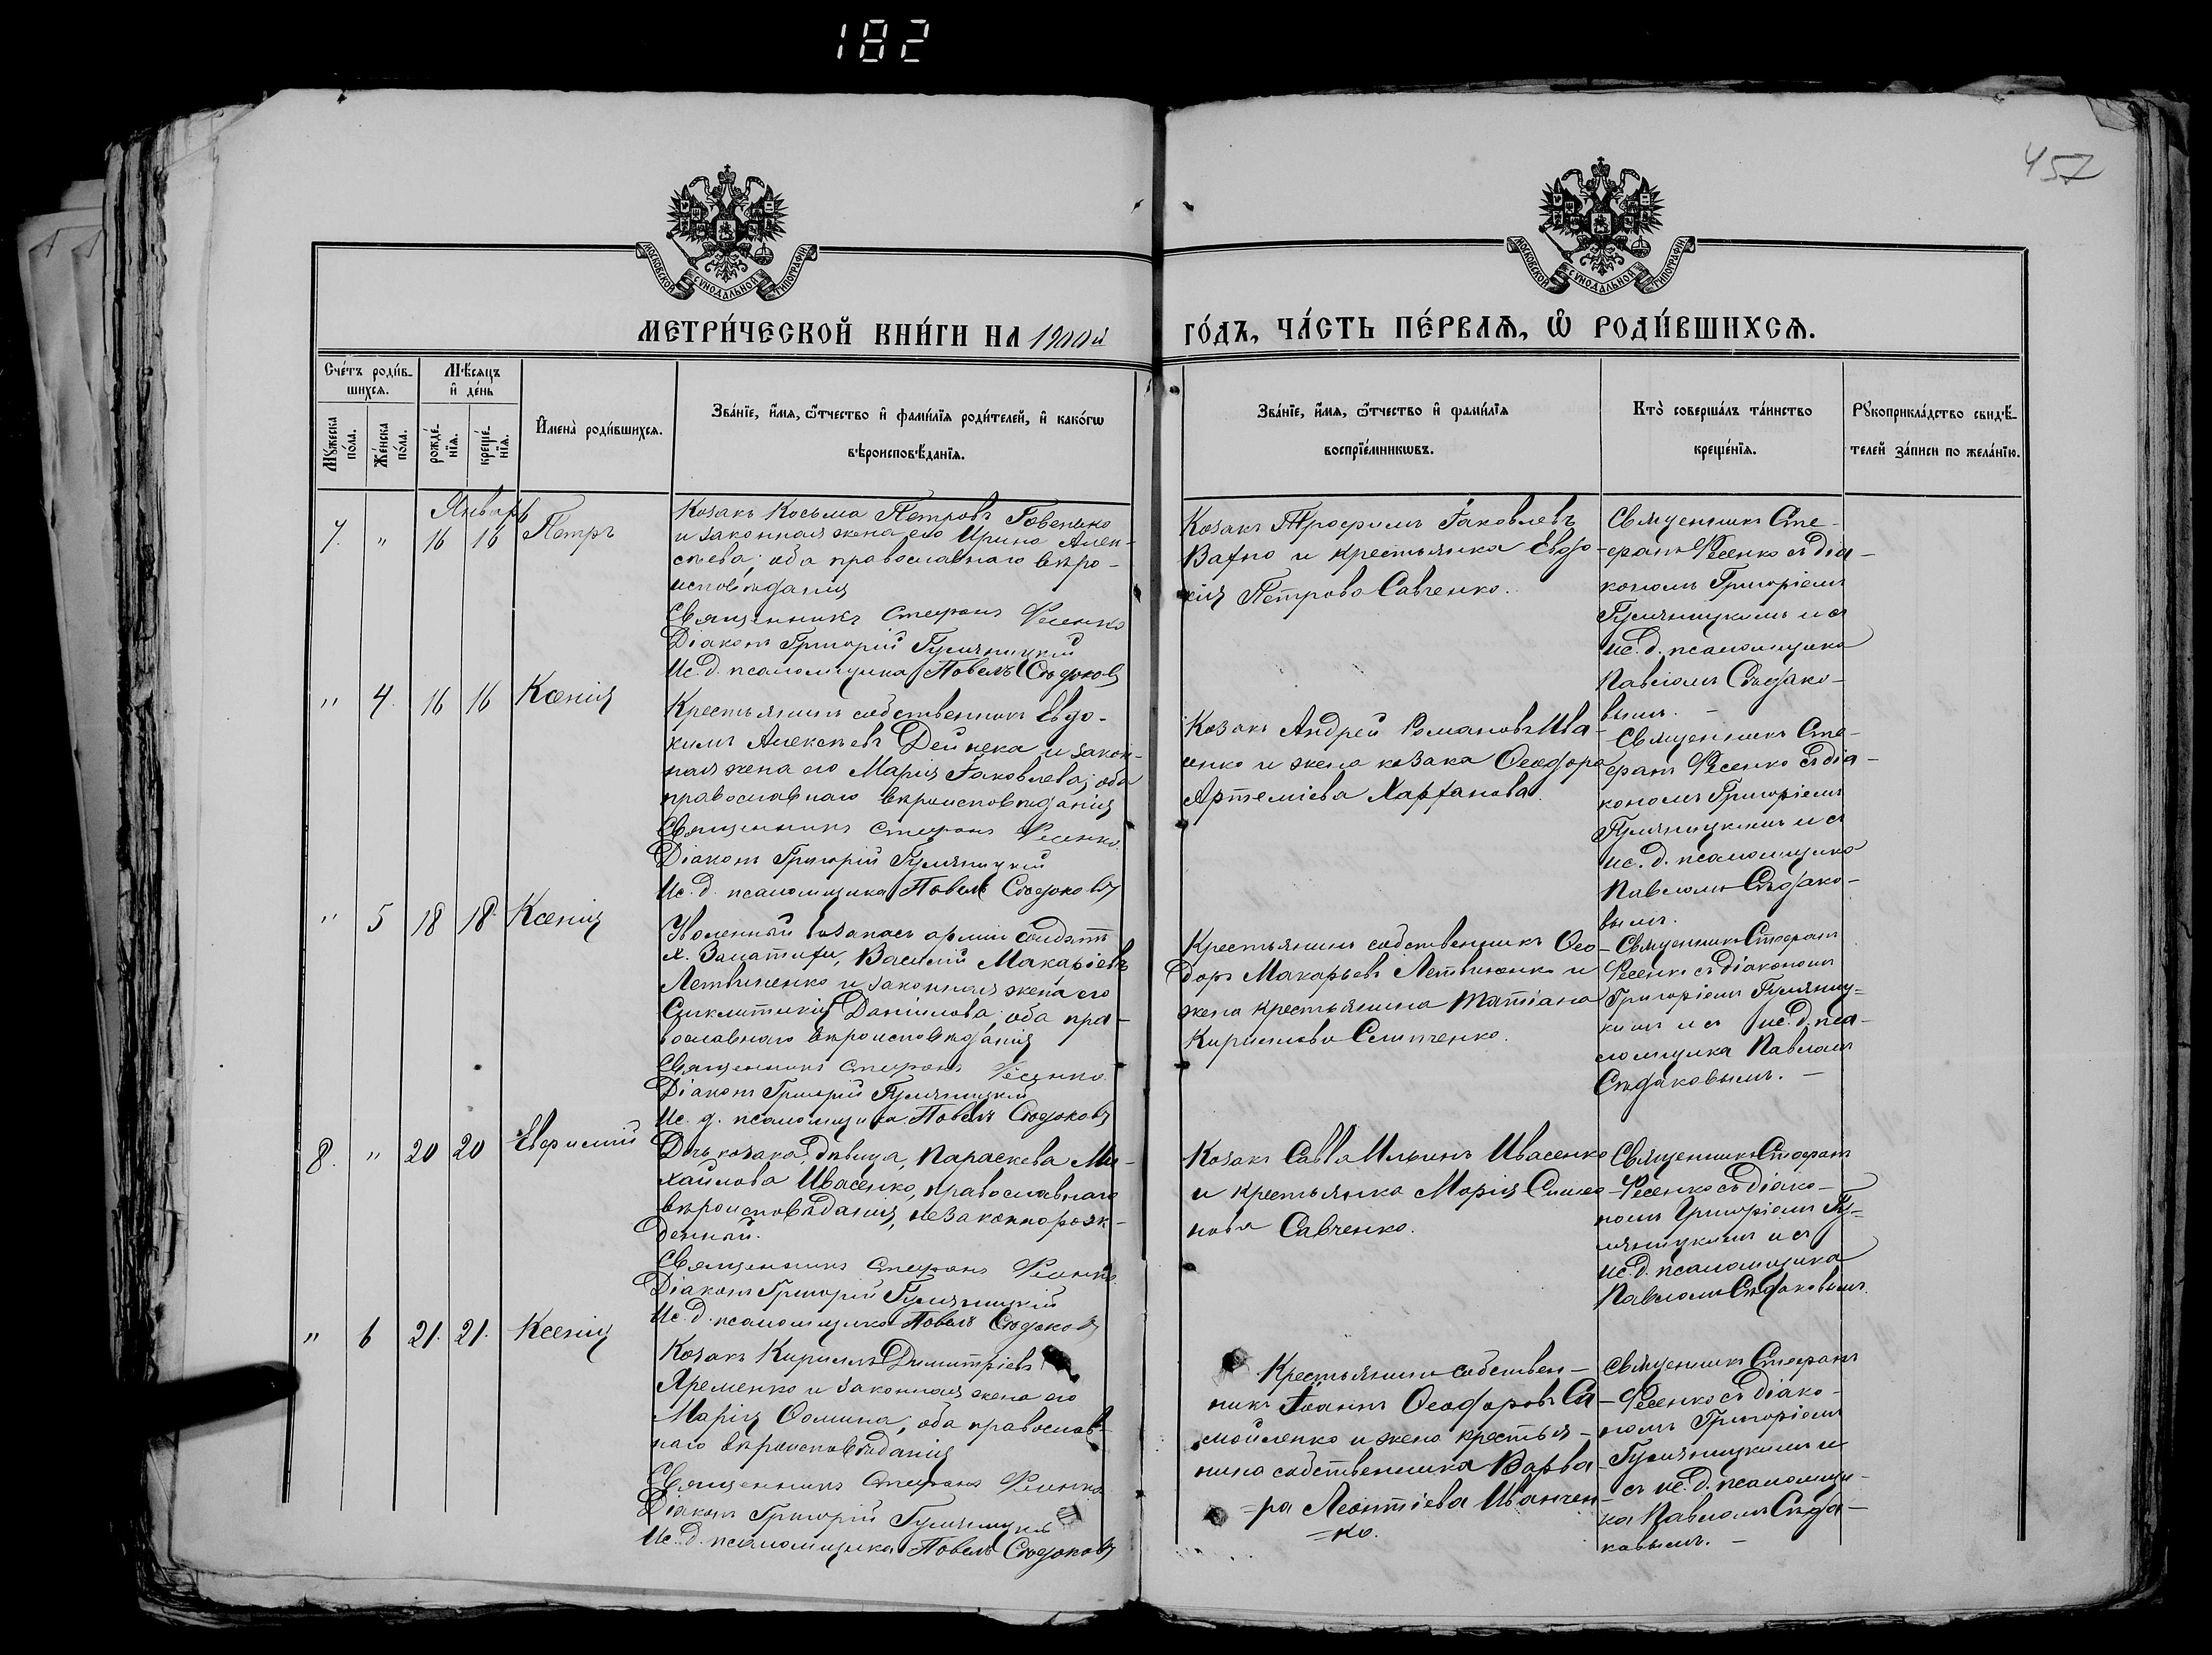 182
457
МОСКОВСКОЙ СУНОДАЛЬНОЙ ТИПОГРАФІИ
МОСКОВСКОЙ СУНОДАЛЬНОЙ ТИПОГРАФІИ
МЕТРИ́ЧЕСКОЙ КНИ́ГИ НА 1900й
ГО́ДЪ, ЧА́СТЬ ПЕ́РВАѦ, Ѡ҆ РОДИ́ВШИХСѦ.
Сче́тъ роди́в-
шихсѧ.
Мѣ́сѧцъ
и҆ де́нь
Мꙋ́жеска
по́ла.
Же́нска
по́ла.
рожде́-
нїѧ.
креще́-
нїѧ.
И҆мена̀ роди́вшихсѧ.
Зва́нїе, и҆́мѧ, ѻ҆́тчество и҆ фами́лїѧ роди́телей, и҆ како́гѡ
вѣроисповѣ́данїѧ.
Зва́нїе, и҆́мѧ, ѻ҆́тчество и҆ фами́лїѧ
воспрїе́мникѡвъ.
Кто̀ соверша́лъ та́инство
креще́нїѧ.
Рꙋкоприкла́дство свидѣ́-
телей за́писи по жела́нїю.
Январь
7. " 16 16 Петръ
Козакъ Косьма Петровъ
и законная жена его Ирина Алек-
сѣева; оба православнаго вѣро-
исповѣданія
Священникъ Стефанъ Фесенко
Діаконъ Григорій Гуляницкій
Ис. д. псаломщика Павелъ Сѣдаковъ
Козакъ Трофимъ Іаковлевъ
Вахно и крестьянка Евдо-
кія Петрова Савченко.
Священникъ Сте-
фанъ Фесенко съ діа-
кономъ Григоріемъ
Гуляницкимъ и съ
ис. д. псаломщика
Павломъ Сѣдако-
вымъ.
" 4. 16 16 Ксенія
Крестьянинъ собственникъ Евдо-
кимъ Алексѣевъ Дейнека и закон-
ная жена его Марія Іаковлева; оба
православнаго вѣроисповѣданія
Священникъ Стефанъ Фесенко.
Діаконъ Григорій Гуляницкій
Ис. д. псаломщика Павелъ Сѣдаковъ
Козакъ Андрей Романовъ Ива-
енко и жена козака Ѳеодора
Артемиева Харханова.
Священникъ Сте-
фанъ Фесенко съ діа-
кономъ Григоріемъ
Гуляницкимъ и съ
ис. д. псаломщика
Павломъ Сѣдако-
вымъ.
" 5 18 18. Ксенія
Уволенный въ запасъ арміи солдатъ
Василій Макаріевъ
Литвиненко и законная жена его
Синклитикія Даніилова; оба пра-
вославнаго вѣроисповѣданія
Священникъ Стефанъ Фесенко.
Діаконъ Григорій Гуляницкій
Ис. д. псаломщика Павелъ Сѣдаковъ
Крестьянинъ собственникъ Ѳео-
доръ Макарьевъ Литвиненко и
жена крестьянина Татіана
Кириллова Слипченко.
Священникъ Стефанъ
Фесенко съ діакономъ
Григоріемъ Гуляниц=
кимъ и съ ис. д. пса-
ломщика Павломъ
Сѣдаковымъ.
8. " 20 20 Евфимій
Дочь козака, дѣвица, Параскева Ми-
хайлова Ивасенко, православнаго
вѣроисповѣданія, незаконнорож-
денный.
Священникъ Стефанъ Фесенко
Діаконъ Григорій Гуляницкій
Ис. д. псаломщика Павелъ Сѣдаковъ
Козакъ Савва Ильинъ Ивасенко
и крестьянка Марія Симео-
нова Савченко.
Священникъ Стефанъ
Фесенко съ діако-
номъ Григоріемъ Гу=
ляницкимъ и съ
ис. д. псаломщика
Павломъ Сѣдаковымъ.
" 6 21. 21. Ксенія
Козакъ Кириллъ Димитріевъ
Яременко и законная жена его
Марія Ѳомина; оба православ-
наго вѣроисповѣданія
Священникъ Стефанъ Фесенко
Діаконъ Григорій Гуляницкій
Ис. д. псаломщика Павелъ Сѣдаковъ
Крестьянинъ собствен-
никъ Іоаннъ Ѳеодоровъ Са-
мойленко и жена крестья-
нина собственника Варва-
=ра Леонтіева Иванчен-
=ко.
Священникъ Стефанъ
Фесенко съ діако-
номъ Григоріемъ
Гуляницкимъ и
съ ис. д. псаломщи-
ка Павломъ Сѣда-
ковымъ.